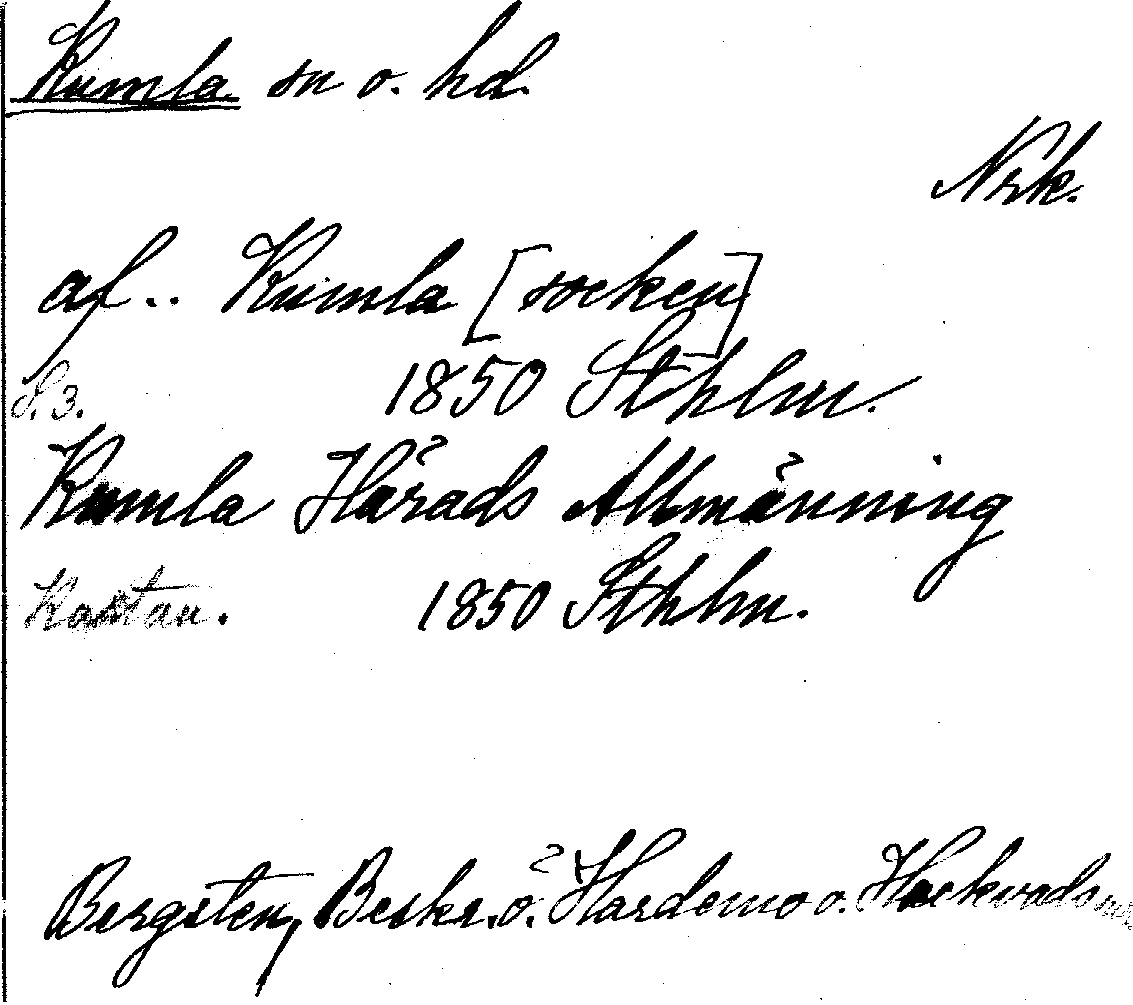 Kumla sn o. hd.
Nrk.
af.. Kumla [socken]
S. 3. 1850 Sthlm.
Kumla Härads Allmänning
Kartan. 1850 Sthlm.
Bergsten, Beskr. ö. Hardemo o. Hackvads snr.